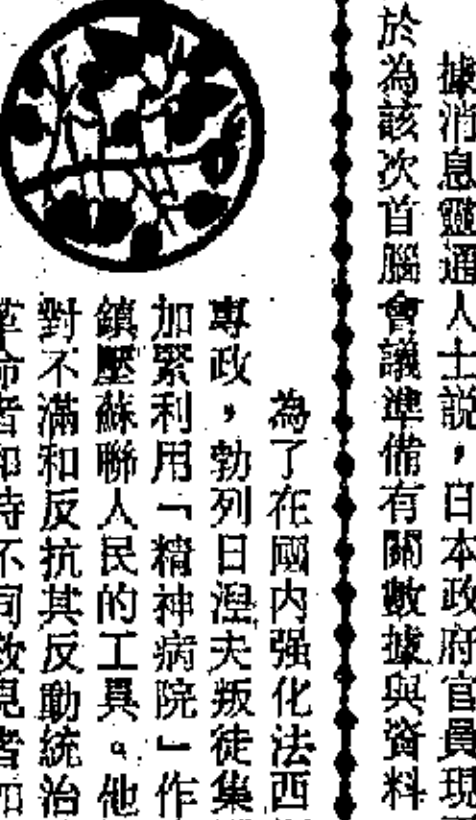 據消息靈通人士說，日本政府官員現
於為該次首腦會議準備有關數據與資料
為了在國內强化法西
專政，勃列日涅夫叛徒集
加緊利用「精神病院」作
鎮壓蘇聯人民的工具。他
對不滿和反抗其反動統治
革命者和持不同政見者加